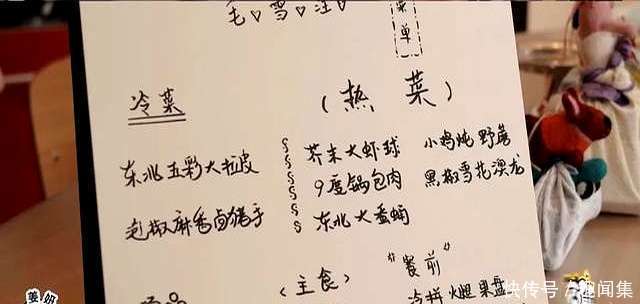 毛 雪 汪
菜单
冷菜
(热菜)
东北五彩大拉皮
麻香卤猪手
芥末大虾球 小鸡炖野蘑
9度锅包肉 黑椒雪花澳龙
东北大蚕蛹
"餐前"
<主食>
冷拼 火腿 果盘
姜妍
快传号/新闻集